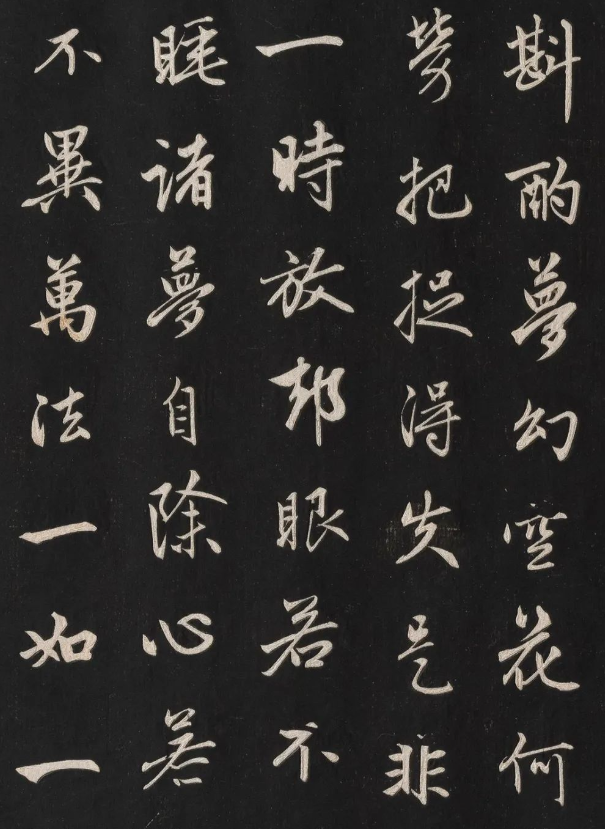 斟酌夢幻空花何
勞把捉得失是非
一時放却眼若不
睡諸夢自除心若
不異萬法一如一